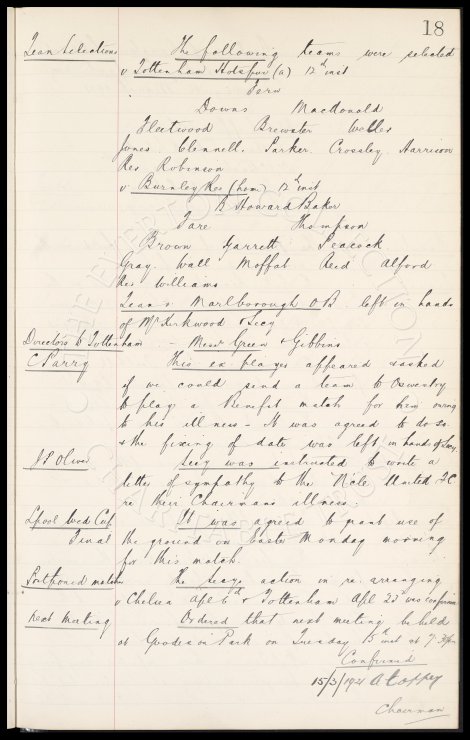 18
Team Selections The following teams were selected
v Tottenham Hotspur (a) 12th inst
Fern
Downs MacDonald
Fleetwood Brewster Weller
Jones. Clennell. Parker. Crossley. Harrison
Res Robinson
v Burnley Res (hom) 12th inst
B Howard Baker
Fare Thompson
Brown Garrett Peacock
Gray. Wall Moffat Reid Alford
Res Williams
Team v Marlborough O.B. left in hands
of Mr Kirkwood & Secy
Directors to Tottenham - Messrs Green & Gibbins
C Parry This ex player appeared & asked
if we could send a team to Oswestry
to play a Benefit match for him owing
to his illness - It was agreed to do so.
& the fixing of date was left in hands of Secy.
J P Oliver Secy was instructed to write a
letter of sympathy to the N'cle United F.C
re their Chairmans illness.
Lpool Wed Cup It was agreed to grant use of
Final the ground on Easter Monday morning
for this match.
Postponed matches The Secys action in re. arranging
v Chelsea Apl 6th & Tottenham Apl 23rd was confirmed
Next meeting Ordered that next meeting be held
at Goodison Park on Tuesday 15th inst at 7.30pm
Confirmed
15/3/1921 A Coffey
Chairman